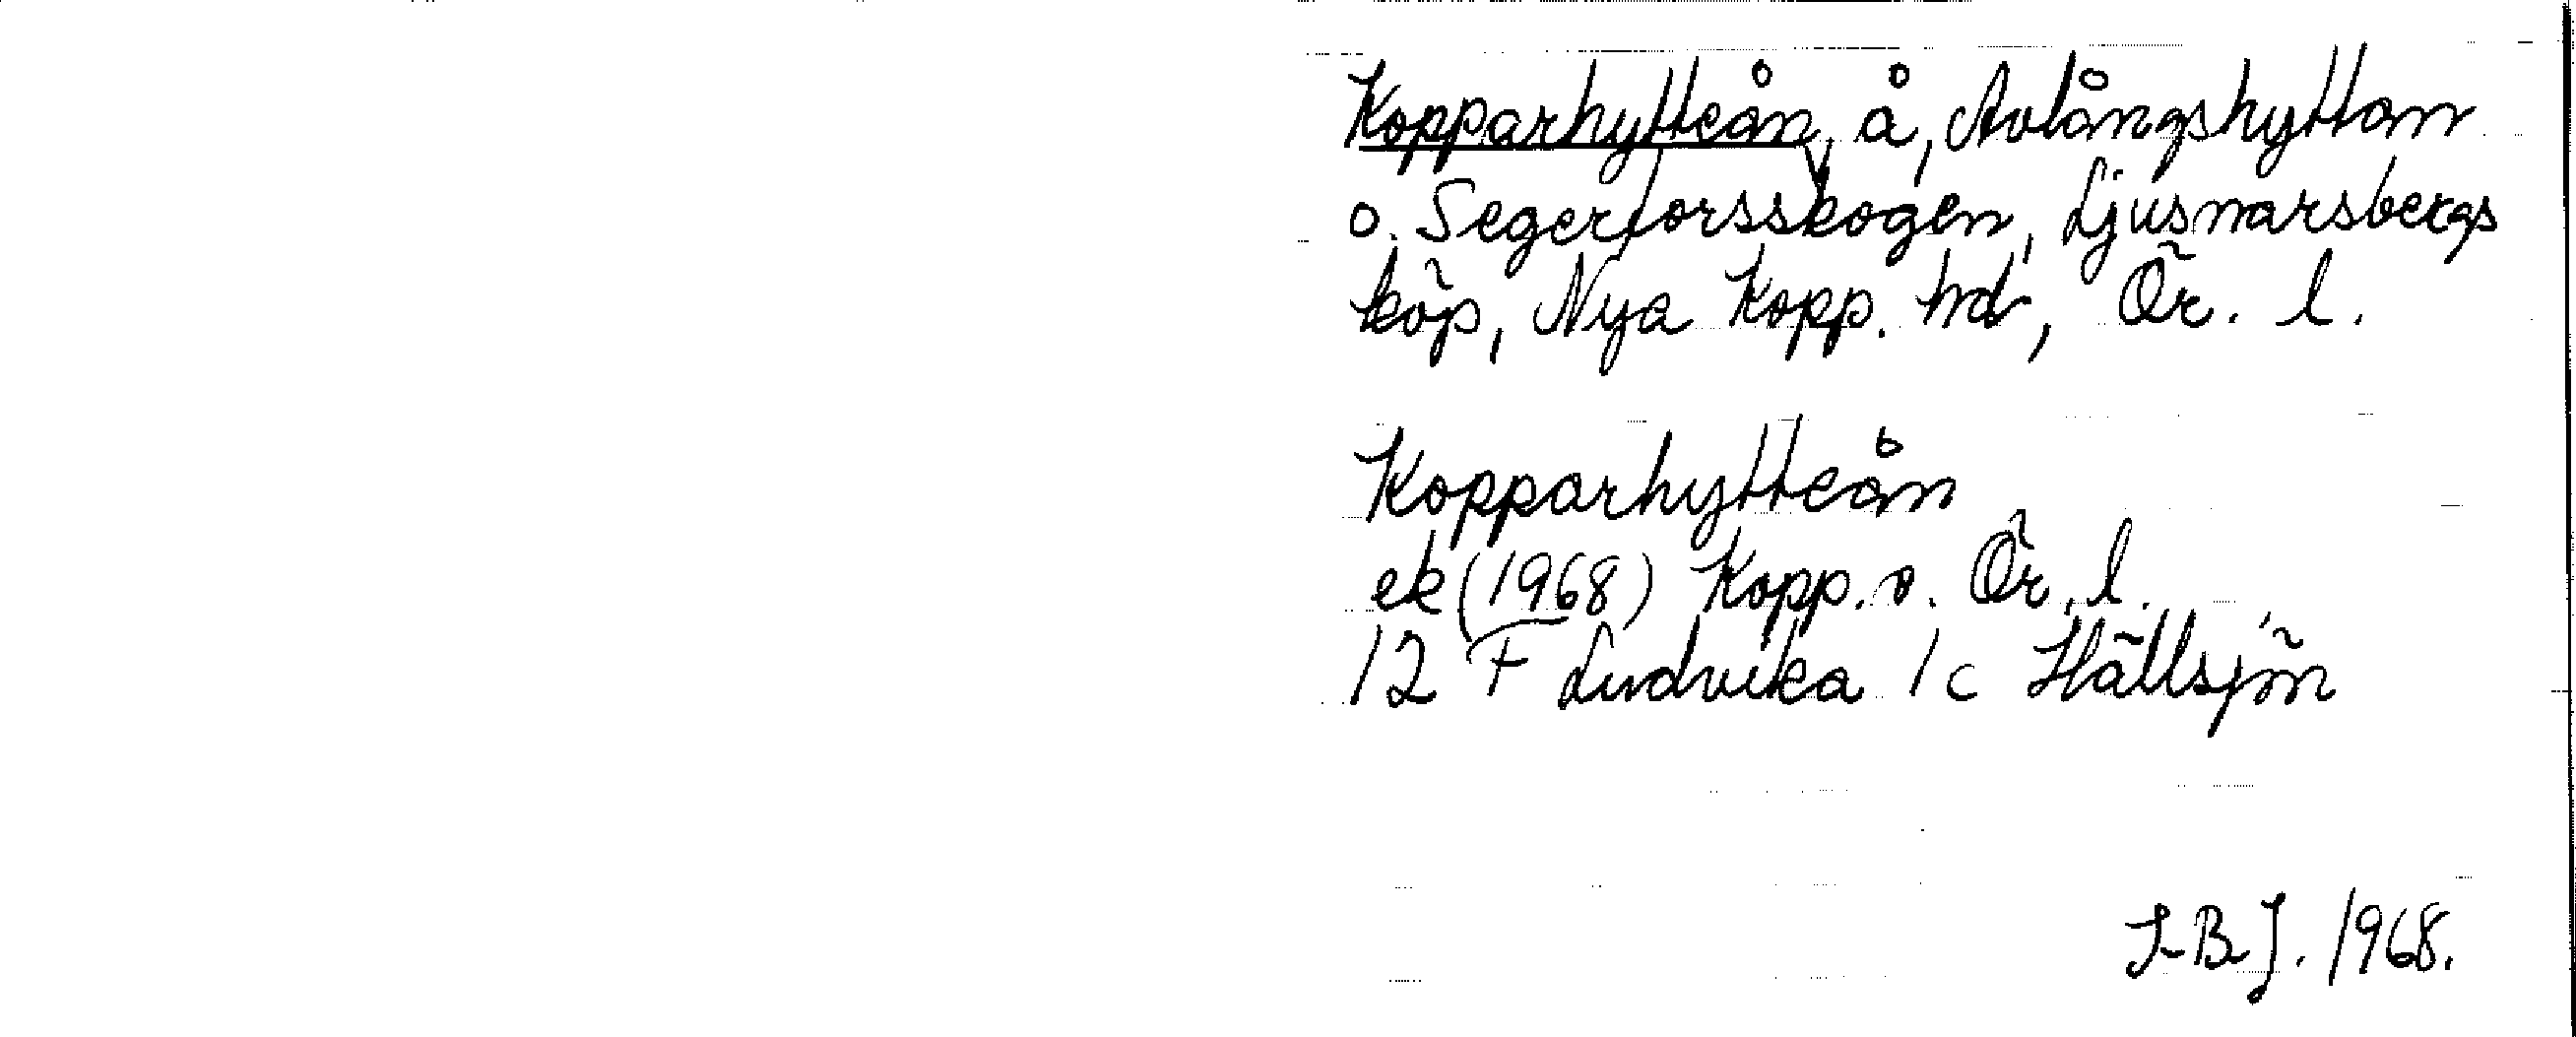 Kopparhytteån, å, Avlångshyttan
o. Segerforsskogen, Ljusnarsbergs
köp, Nya Kopp. hd, Ör. l.
Kopparhytteån
ek (1968) Kopp. o. Ör. l.
12 F Ludvika 1 c Hällsjön
I-B J. 1968.